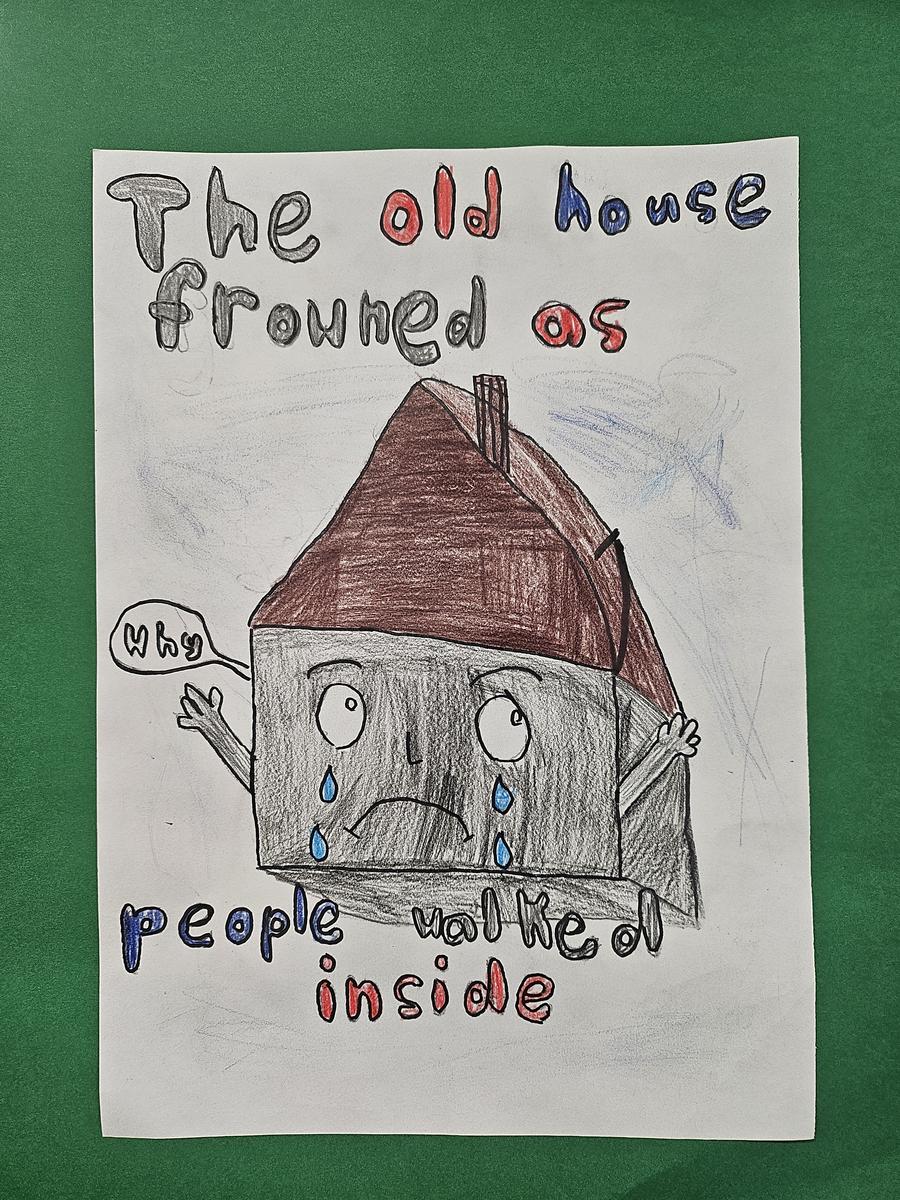 The old house
frowned as
Why
people walked
inside